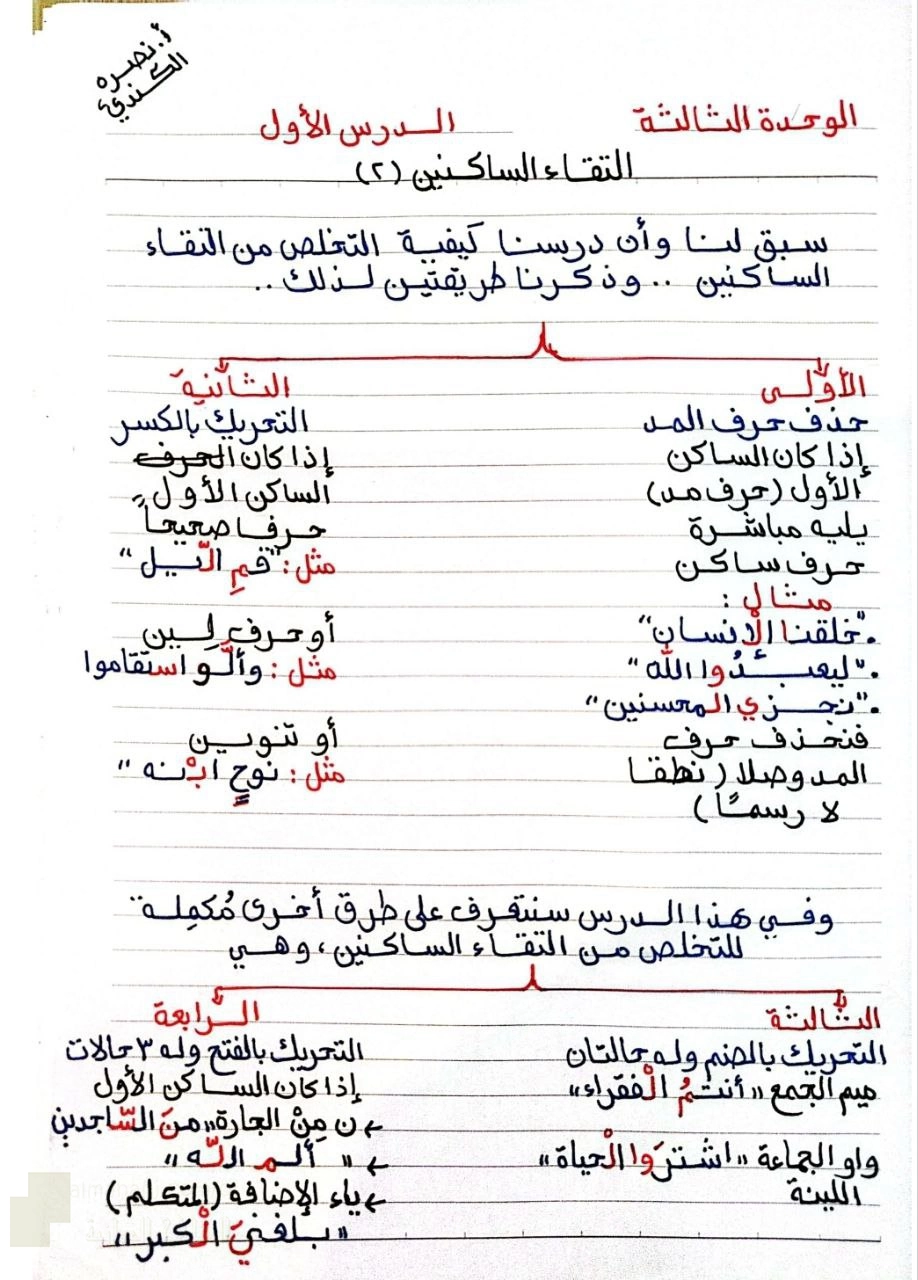 أ. نصره
الكندي
الوحدة الثالثة
الدرس الأول
التقاء الساكنين (٢)
سبق لنا وأن درسنا كيفية التخلص من التقاء
الساكنين .. وذكرنا طريقتين لذلك ..
الأولى
حذف حرف المد
إذا كان الساكن
الأول (حرف مد)
يليه مباشرة
حرف ساكن
مثال :
• "خلقنا الْإنسان"
• "ليعبدُوا الله"
• "نجزي المحسنين"
فنحذف حرف
المد وصلا (نطقا
لا رسمًا)
الثانية
التحريك بالكسر
إذا كان الحرف
الساكن الأول
حرفا صحيحاً
مثل : "قمِ الّيل"
أو حرف لين
مثل : وألَّو استقاموا
أو تنوين
مثل : نوحٍ ابْنه "
وفي هذا الدرس سنتعرف على طرق أخرى مُكمِلة
للتخلص من التقاء الساكنين ، وهي
الثالثة
التحريك بالضم وله حالتان
ميم الجمع "أنتمُ الْفقراء"
واو الجماعة "اشترَوا الْحياة"
اللينة
الرابعة
التحريك بالفتح وله ٣ حالات
إذا كان الساكن الأول
← ن مِنْ الجارة "منَ السّاجدين
← " ألم اللّه "
← ياء الإضافة (المتكلم)
"بلغنيَ الْكبر"